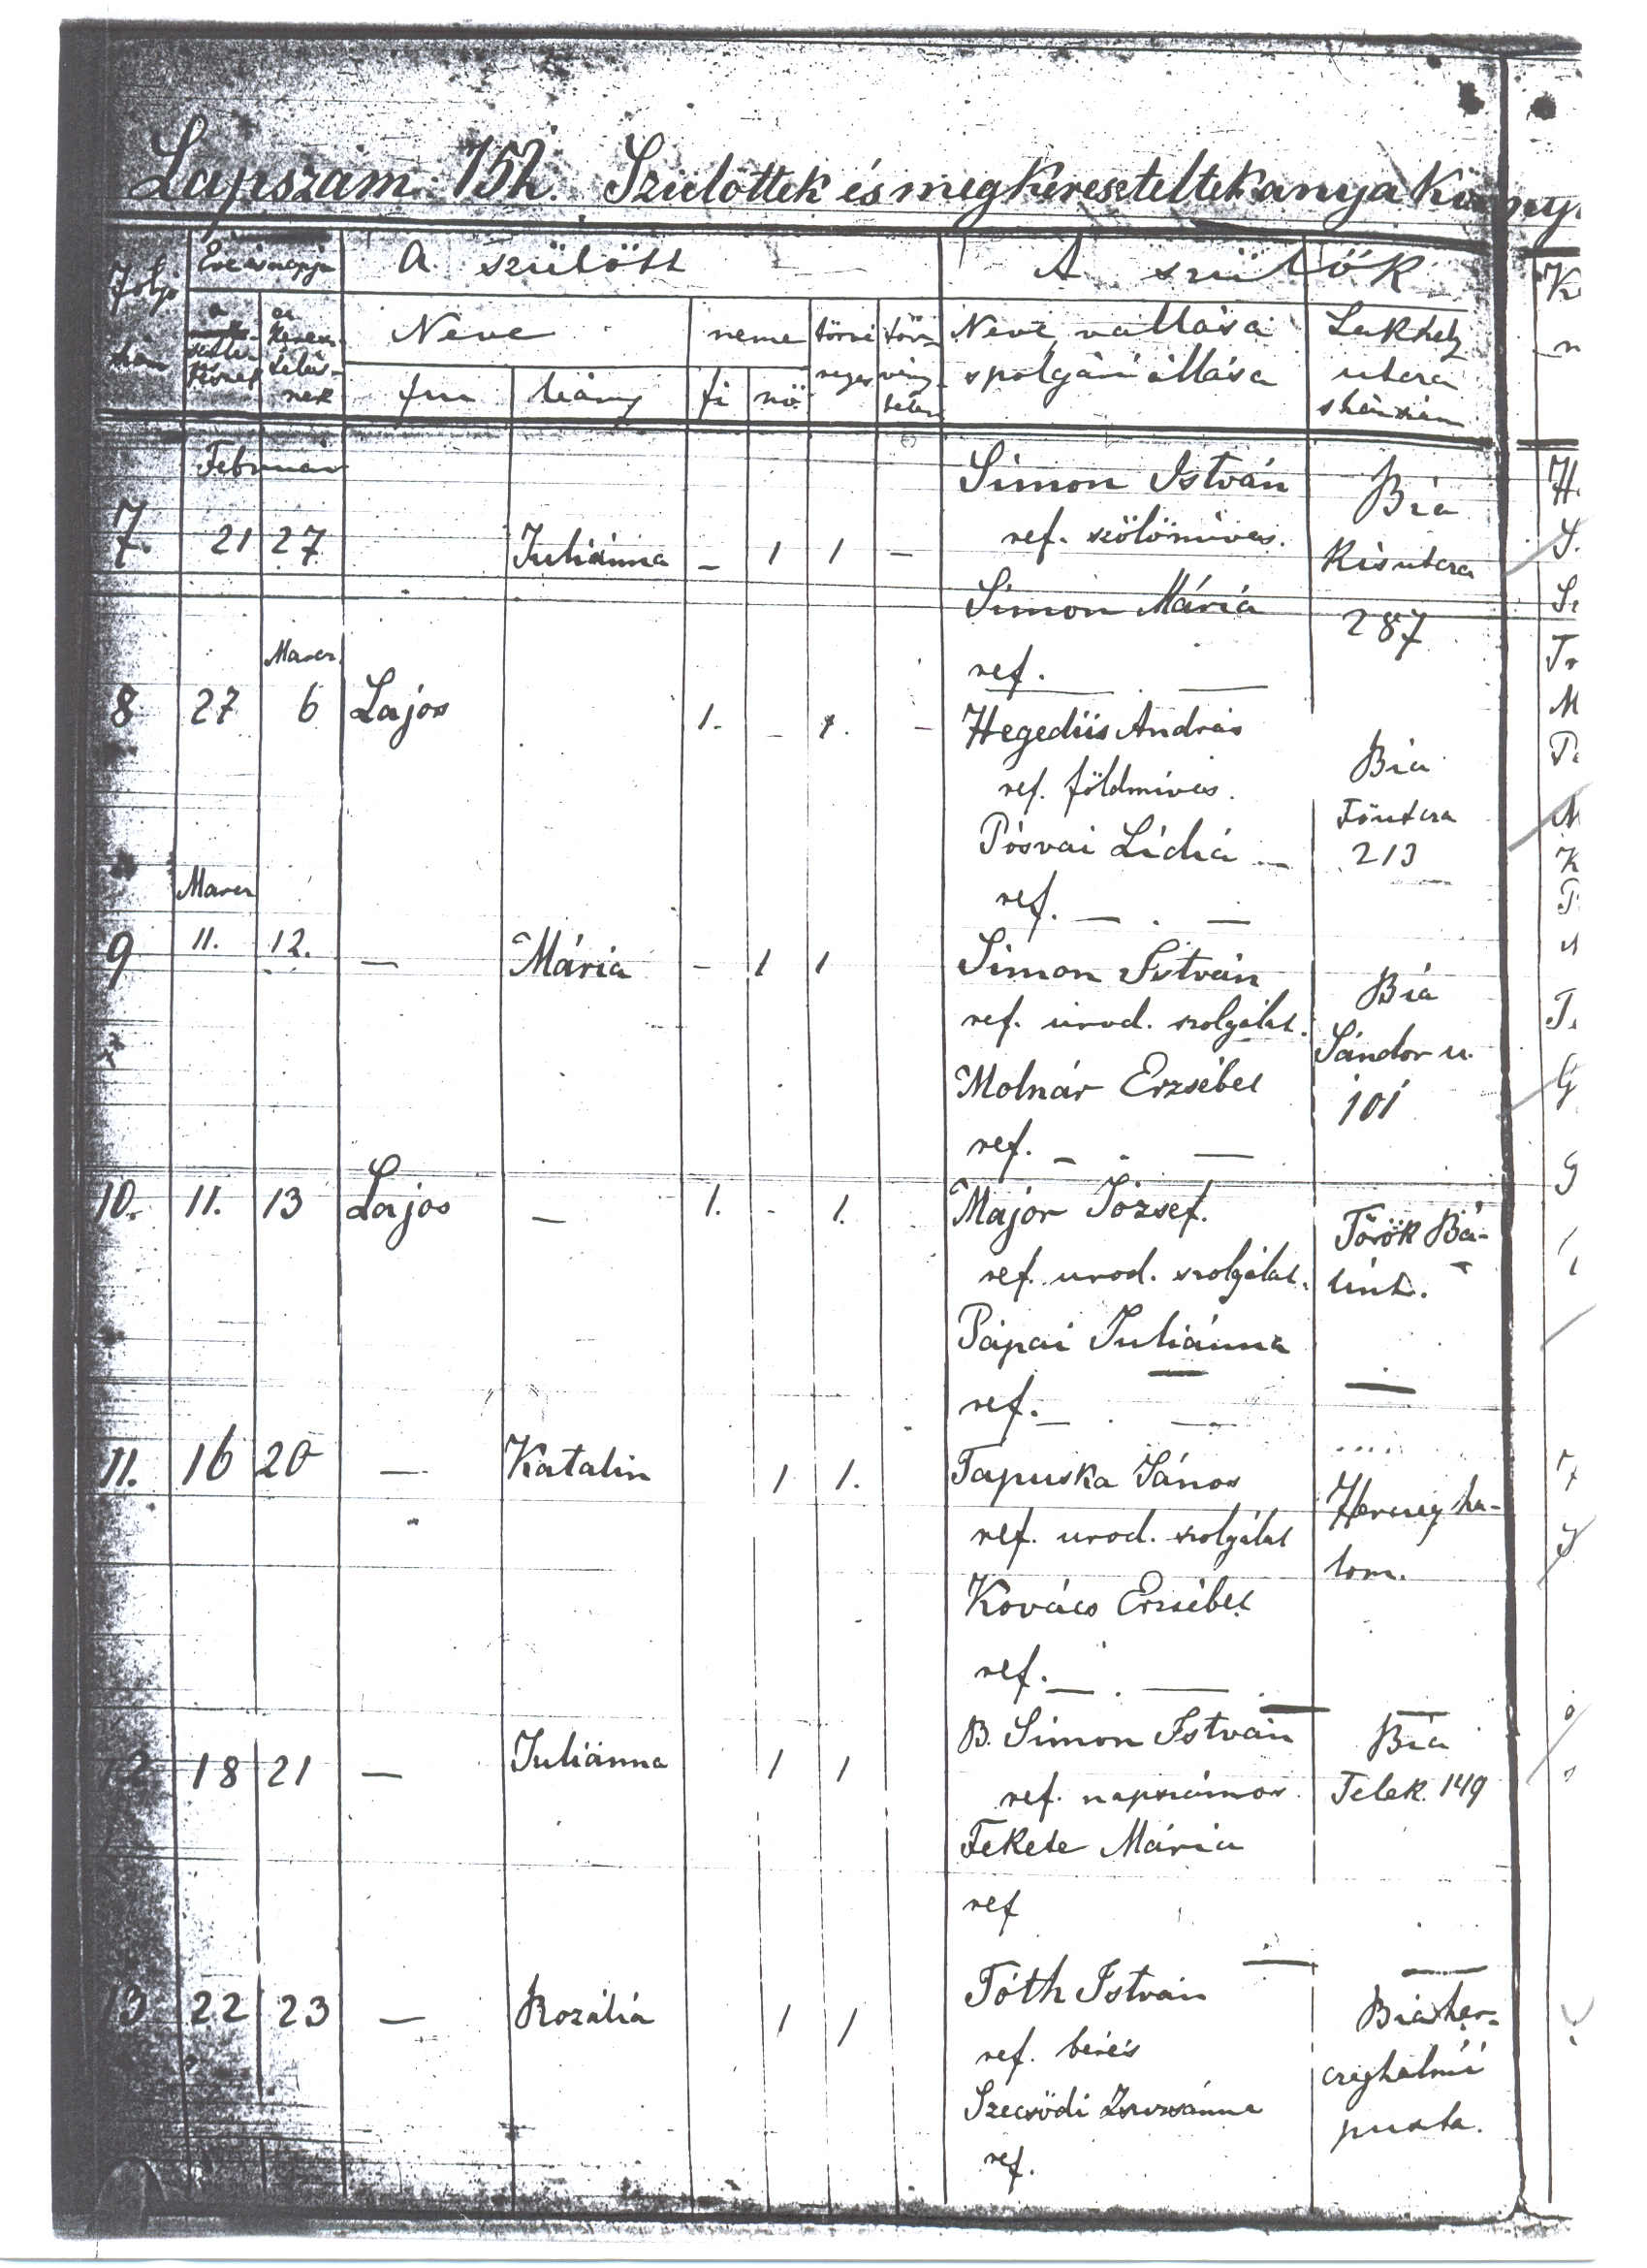 Lapszám: 152. Születtek és megkereszteltek anyakönyv
Folyó
szám
Éve és napja
A szülött
A szülők
a
születésnek
a
keresztelésnek
Neve
fiu
leány
neme
fi
nő
törvényes
törvénytelen
Neve, vallása
s polgári állása
Lakhely
utcza
s házszám
Február
7. 21 27 Juliánna – 1 1 –
Simon István
ref. szőlőmíves.
Simon Mária
ref.
Bia
Kisutcza
287
Marcz
8 27 6 Lajos 1. – 1. –
Hegedüs András
ref. földmíves.
Pósvai Lídia —
ref. — . —
Bia
Főutcza
213
Marcz
9 11. 12. — Mária – 1 1
Simon István
ref. urod. szolgálat.
Molnár Erzsébet
ref. – . —
Bia
Sándor u.
101
10. 11. 13 Lajos — 1. - 1.
Major József.
ref. urod. szolgálat.
Pápai Juliánna
ref. — . —
Török Bá-
lint.
11. 16 20 — Katalin 1 1.
Tapuska János
ref. urod. szolgálat
Kovács Erzsébet
ref. — . —
Herczegha-
lom.
12 18 21 — Juliánna 1 1
B. Simon István
ref. napszámos.
Fekete Mária
ref
Bia
Telek. 149
13 22 23 — Rozália 1 1
Tóth István
ref. béres
Szecsödi Zsuzsánna
ref.
Bia her-
czeghalmi
puszta.